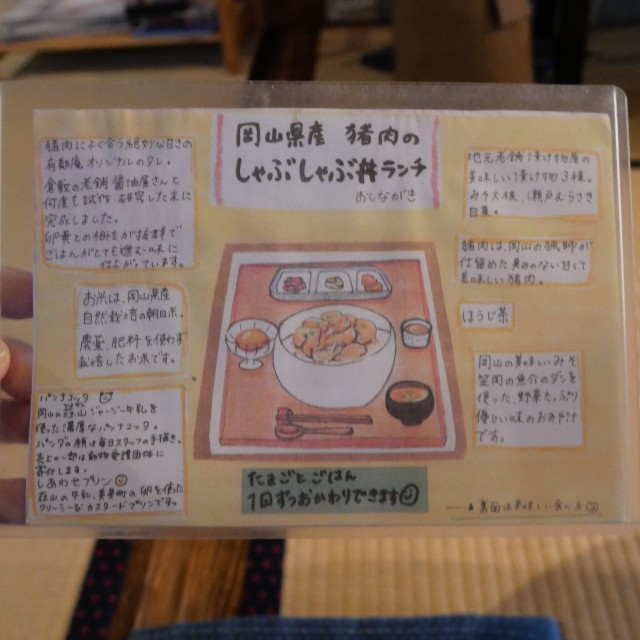 岡山県産 猪肉の
しゃぶしゃぶ丼ランチ
おしながき
猪肉によく合う絶妙な甘さの
有鄰庵オリジナルのタレ。
倉敷の老舗醤油屋さんと
何度も試作、研究した末に
完成しました。
卵黄との相性が抜群で
ごはんがとても進む味に
仕上がっています。
お米は、岡山県産
自然栽培の朝日米。
農薬、肥料を使わず
栽培したお米です。
パンナコッタ
岡山の蒜山ジャージー牛乳を
使った濃厚なパンナコッタ。
パンダの顔は毎日スタッフの手描き。
売上の一部は動物愛護団体に
寄付します。
しあわせプリン
蒜山の牛乳、美星町の卵を使った
クリーミーなカスタードプリンです。
地元老舗漬け物屋の
美味しい漬け物3種。
みそ大根、瀬戸むらさき
白菜。
猪肉は、岡山の猟師が
仕留めた臭みのない甘くて
美味しい猪肉。
ほうじ茶
岡山の美味しいみそ
笠岡の魚穴のダシを
使った、野菜たっぷり
優しい味のおみそ汁
です。
たまごとごはん
1回ずつおかわりできます
裏面は美味しい食べ方